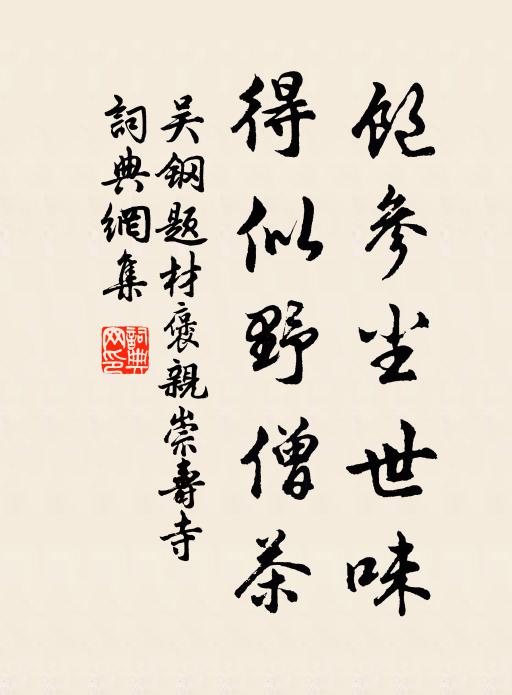 飽參尘世味
得似野僧茶
吴鋼题材褒親崇壽寺
詞典網集
詞典网印